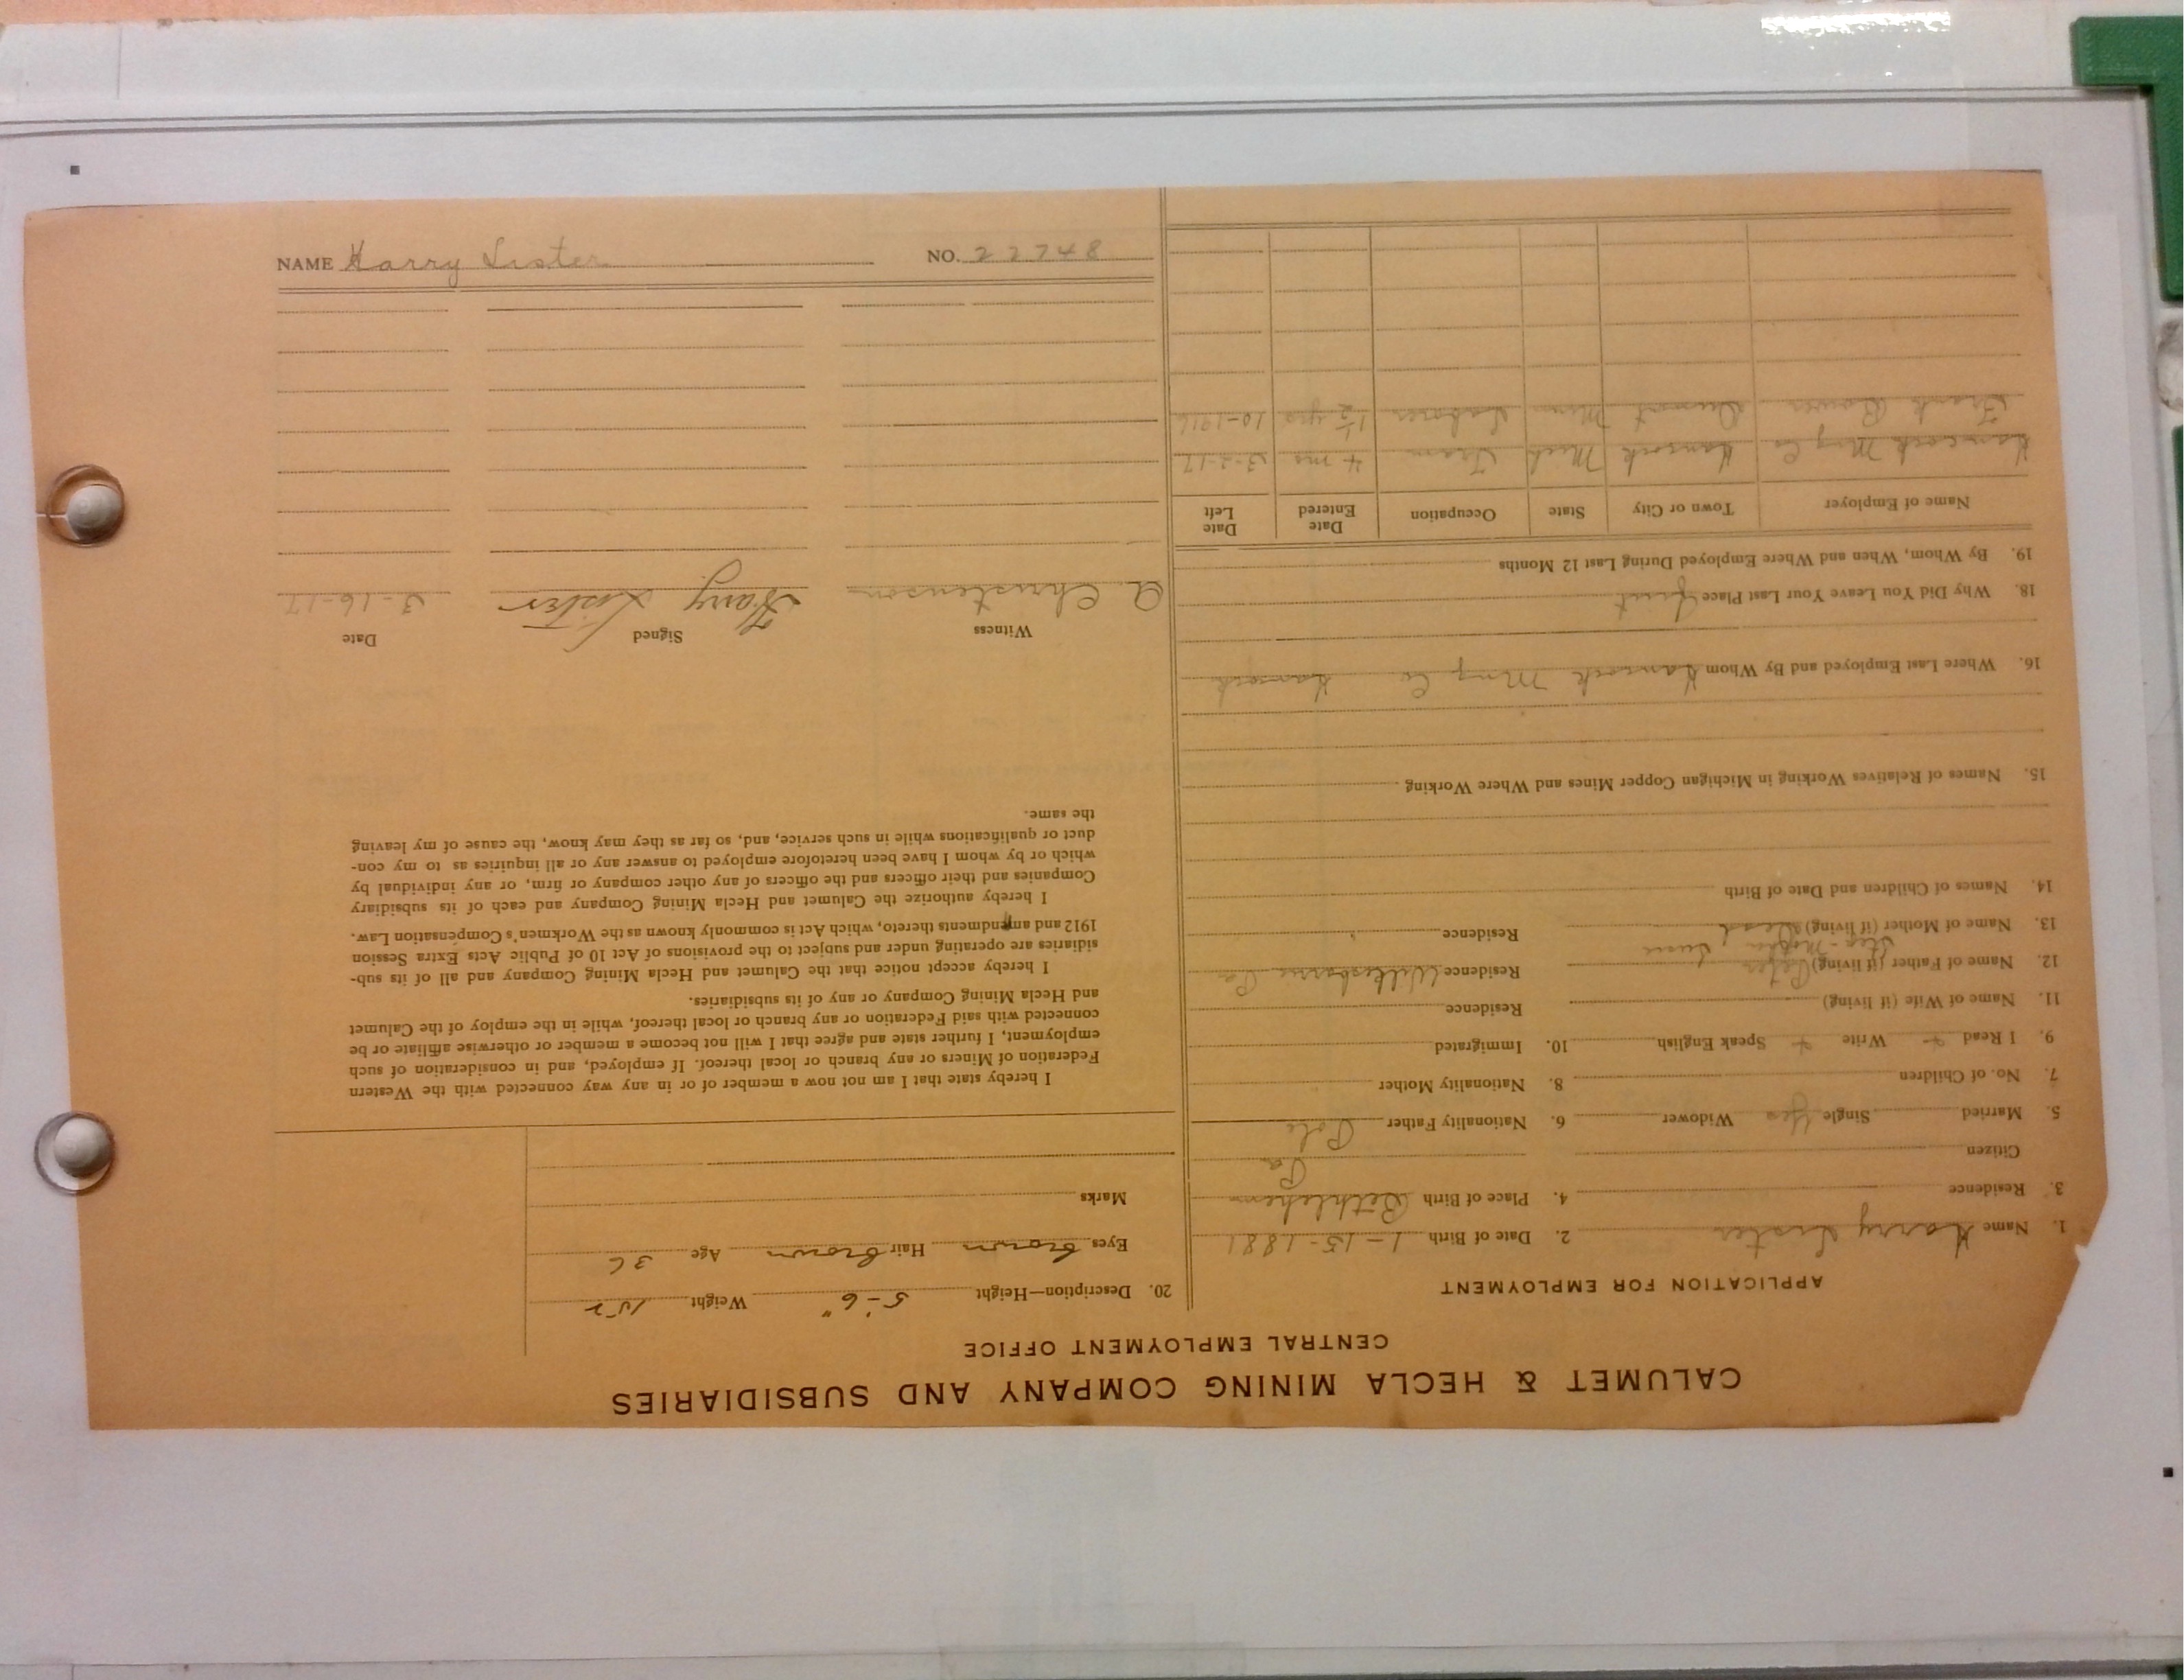 CALUMET & HECLA MINING COMPANY AND SUBSIDIARIES
CENTRAL EMPLOYMENT OFFICE
APPLICATION FOR EMPLOYMENT
1. Name Harry Lister 2. Date of Birth 1-15-1881
3. Residence 4. Place of Birth Bethlehem
Citizen Pa
5. Married Single Yes Widower 6. Nationality Father Pole
7. No. of Children 8. Nationality Mother
9. I Read Write Speak English 10. Immigrated
11. Name of Wife (if living) Residence
12. Name of Father (if living) Peter Residence Wilkesbarre Pa
Step-Mother Susie
13. Name of Mother (if living) Dead Residence
14. Names of Children and Date of Birth
15. Names of Relatives Working in Michigan Copper Mines and Where Working
16. Where Last Employed and By Whom Hancock Mng Co Hancock
18. Why Did You Leave Your Last Place Quit
19. By Whom, When and Where Employed During Last 12 Months
Name of Employer Town or City State Occupation Date Entered Date Left
Hancock Mng Co Hancock Mich Tram 4 mo 3-2-17
Frank Minn Laborer 1½ yrs 10-1916
20. Description—Height 5'-6" Weight 152
Eyes brown Hair brown Age 36
Marks
I hereby state that I am not now a member of or in any way connected with the Western
Federation of Miners or any branch or local thereof. If employed, and in consideration of such
employment, I further state and agree that I will not become a member or otherwise affiliate or be
connected with said Federation or any branch or local thereof, while in the employ of the Calumet
and Hecla Mining Company or any of its subsidiaries.
I hereby accept notice that the Calumet and Hecla Mining Company and all of its sub-
sidiaries are operating under and subject to the provisions of Act 10 of Public Acts Extra Session
1912 and amendments thereto, which Act is commonly known as the Workmen's Compensation Law.
I hereby authorize the Calumet and Hecla Mining Company and each of its subsidiary
Companies and their officers and the officers of any other company or firm, or any individual by
which or by whom I have been heretofore employed to answer any or all inquiries as to my con-
duct or qualifications while in such service, and, so far as they may know, the cause of my leaving
the same.
Witness Signed Date
A. Christenson Harry Lister 3-16-17
NAME Harry Lister NO. 22748